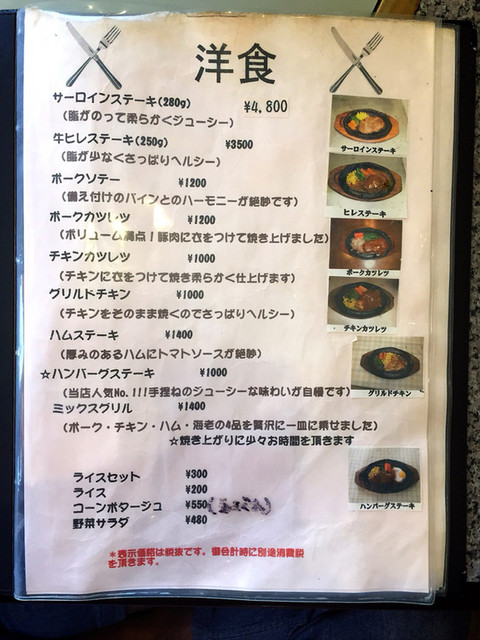 洋食
サーロインステーキ(280g) ¥4,800
(脂がのって柔らかくジューシー)
牛ヒレステーキ(250g) ¥3500
(脂が少なくさっぱりヘルシー)
ポークソテー ¥1200
(備え付けのパインとのハーモニーが絶妙です)
ポークカツレツ ¥1200
(ボリューム満点!豚肉に衣をつけて焼き上げました)
チキンカツレツ ¥1000
(チキンに衣をつけて焼き柔らかく仕上げます)
グリルドチキン ¥1000
(チキンをそのまま焼くのでさっぱりヘルシー)
ハムステーキ ¥1400
(厚みのあるハムにトマトソースが絶妙)
☆ハンバーグステーキ ¥1000
(当店人気No.1!!手捏ねのジューシーな味わいが自慢です)
ミックスグリル ¥1400
(ポーク・チキン・ハム・海老の4品を贅沢に一皿に乗せました)
☆焼き上がりに少々お時間を頂きます
ライスセット ¥300
ライス ¥200
コーンポタージュ ¥550
野菜サラダ ¥480
*表示価格は税抜です。御会計時に別途消費税
を頂きます。
サーロインステーキ
ヒレステーキ
ポークカツレツ
チキンカツレツ
グリルドチキン
ハンバーグステーキ